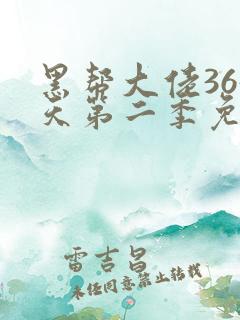 黑帮大佬36
天第二季免
雷吉昌
未经同意禁止转载